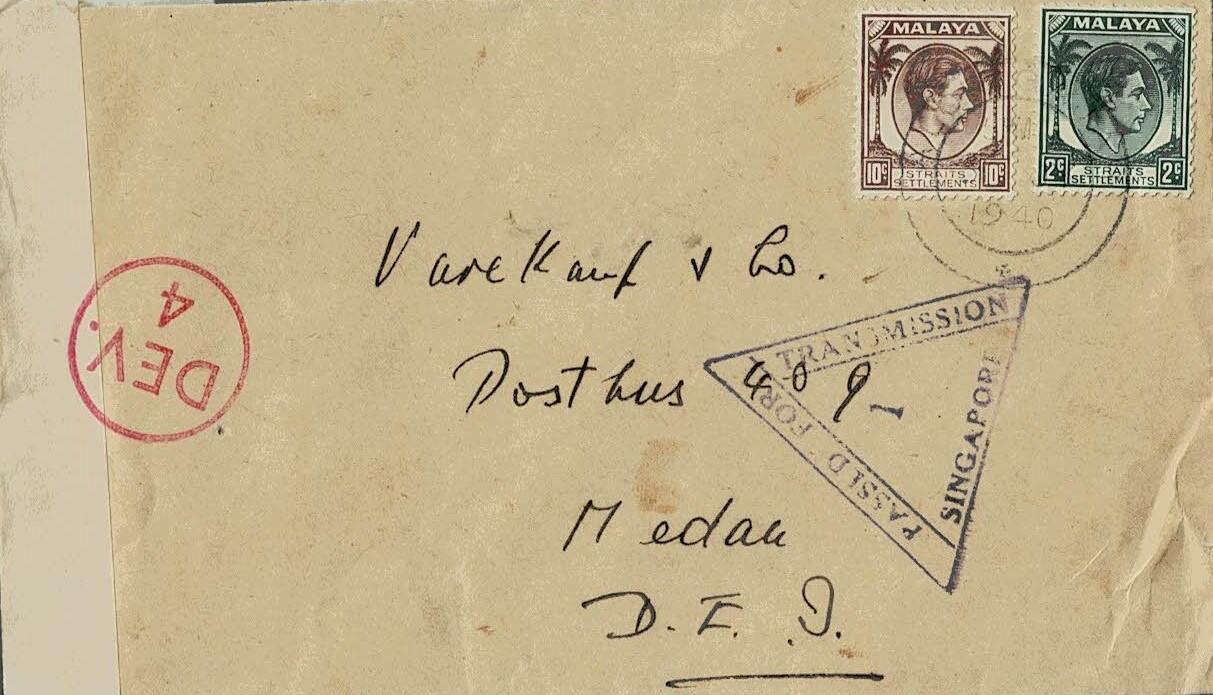 MALAYA
10c STRAITS SETTLEMENTS 10c
MALAYA
2c STRAITS SETTLEMENTS 2c
1940
Varekamp & Co.
Posthus 409
Medan
D. E. I.
PASSED FOR TRANSMISSION
SINGAPORE
1
DEV.
4